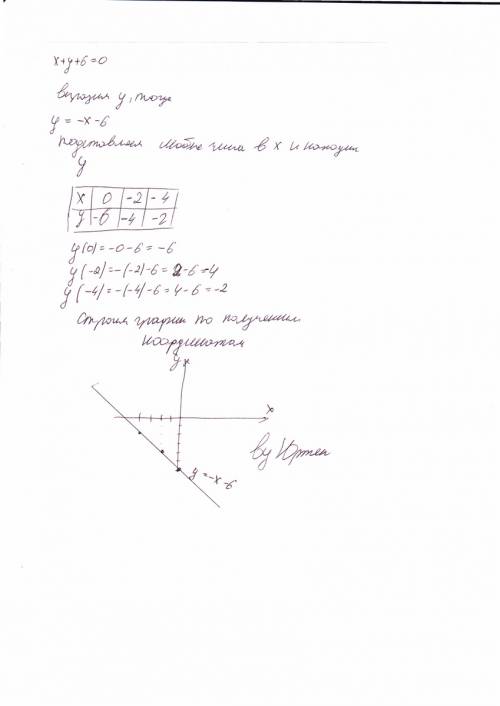 x+y+6=0
выразим y, тогда
y = -x-6
подставляем любые числа в x и находим
y
x 0 -2 -4
y -6 -4 -2
y(0)=-0-6=-6
y(-2)=-(-2)-6=2-6=-4
y(-4)=-(-4)-6=4-6=-2
Строим график по полученным
координатам
y
x
by
y=-x-6